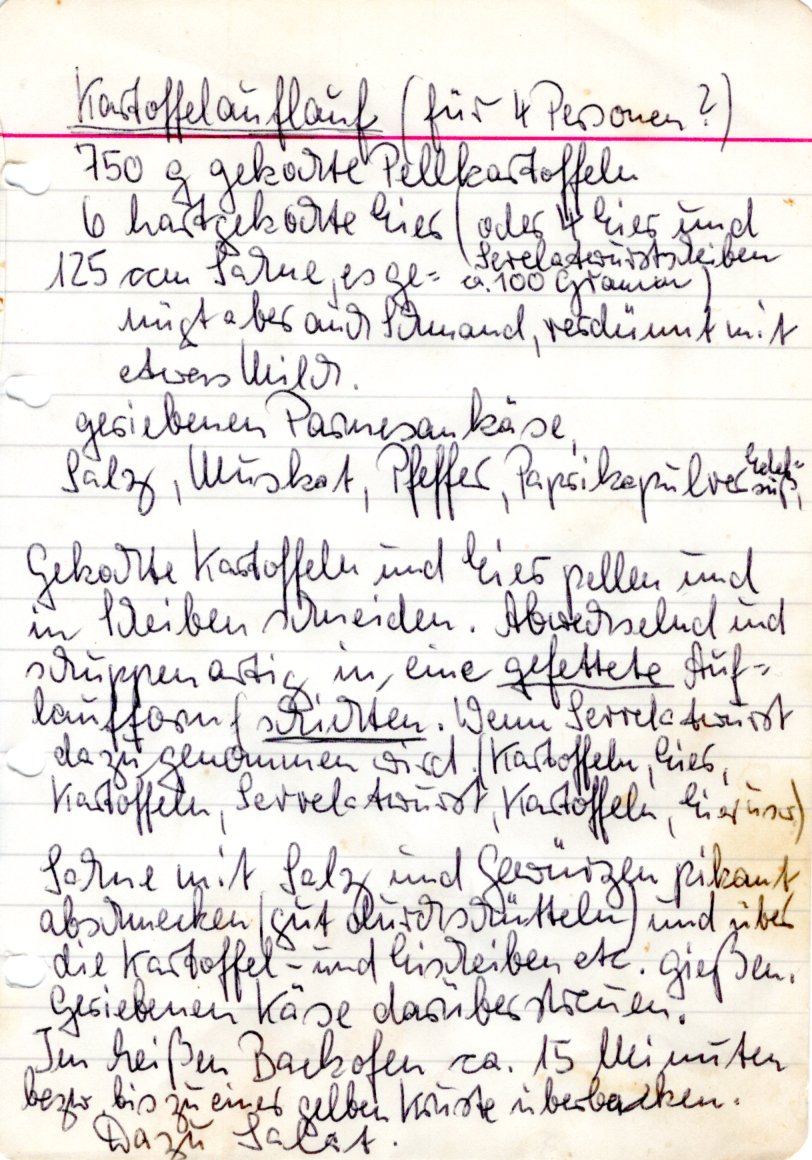 Kartoffelauflauf (für 4 Personen?)
750 g gekochte Pellkartoffeln
6 hartgekochte Eier (oder 4 Eier und
Servelatwurstscheiben
ca. 100 Gramm)
125 ccm Sahne, es ge=
nügt aber auch Schmand, verdünnt mit
etwas Milch.
geriebenen Parmesankäse,
Salz, Muskat, Pfeffer, Paprikapulver Edel=
süß,
Gekochte Kartoffeln und Eier pellen und
in Scheiben schneiden. Abwechselnd und
schuppenartig in eine gefettete Auf=
laufform schichten. Wenn Servelatwurst
dazu genommen wird (Kartoffeln, Eier,
Kartoffeln, Servelatwurst, Kartoffeln, Eier usw)
Sahne mit Salz und Gewürzen pikant
abschmecken (gut durchschütteln) und über
die Kartoffel- und Eischeiben etc. gießen.
Geriebenen Käse darüberstreuen.
Im heißen Backofen ca. 15 Minuten
bezw. bis zu einer gelben Kruste überbacken.
Dazu Salat.